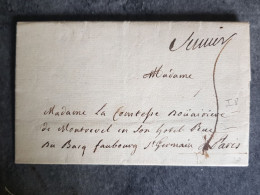 Madame
Madame La Comtesse Doüairiere
de Montrevel en son hotel Rue
du Bacq faubourg St Germain a Paris